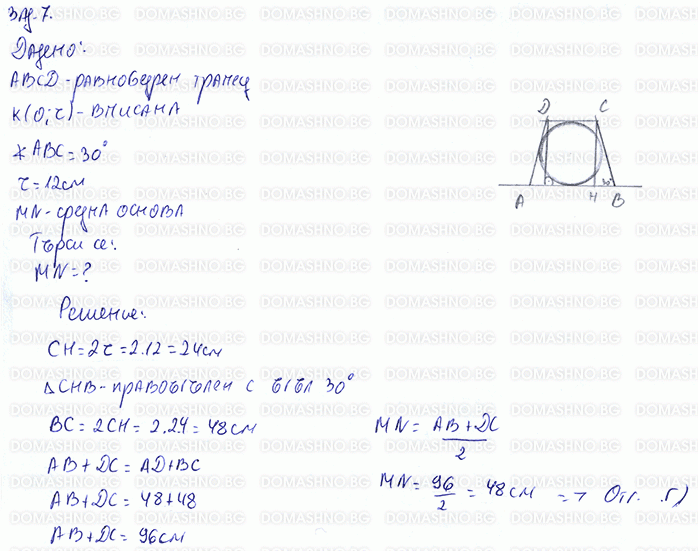 Зад. 7.
Дадено:
ABCD - равнобедрен трапец
K(O; r) - вписана
∢ ABC = 30°
r = 12 см
MN - средна основа
Търси се:
MN = ?
Решение:
CH = 2r = 2.12 = 24 см
△CHB - правоъгълен с ъгъл 30°
BC = 2CH = 2.24 = 48 см
AB + DC = AD + BC
AB + DC = 48 + 48
AB + DC = 96 см
D C
A H B
MN = AB + DC
2
MN = 96/2 = 48 см => Отг. Г)
DOMASHNO.BG